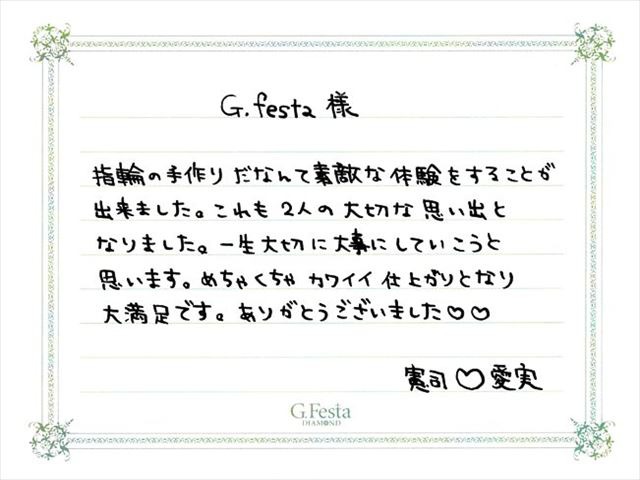 G.festa 様
指輪の手作りだなんて素敵な体験をすることが
出来ました。これも2人の大切な思い出と
なりました。一生大切に大事にしていこうと
思います。めちゃくちゃカワイイ仕上がりとなり
大満足です。ありがとうございました♡♡
憲司♡愛実
G.Festa
DIAMOND